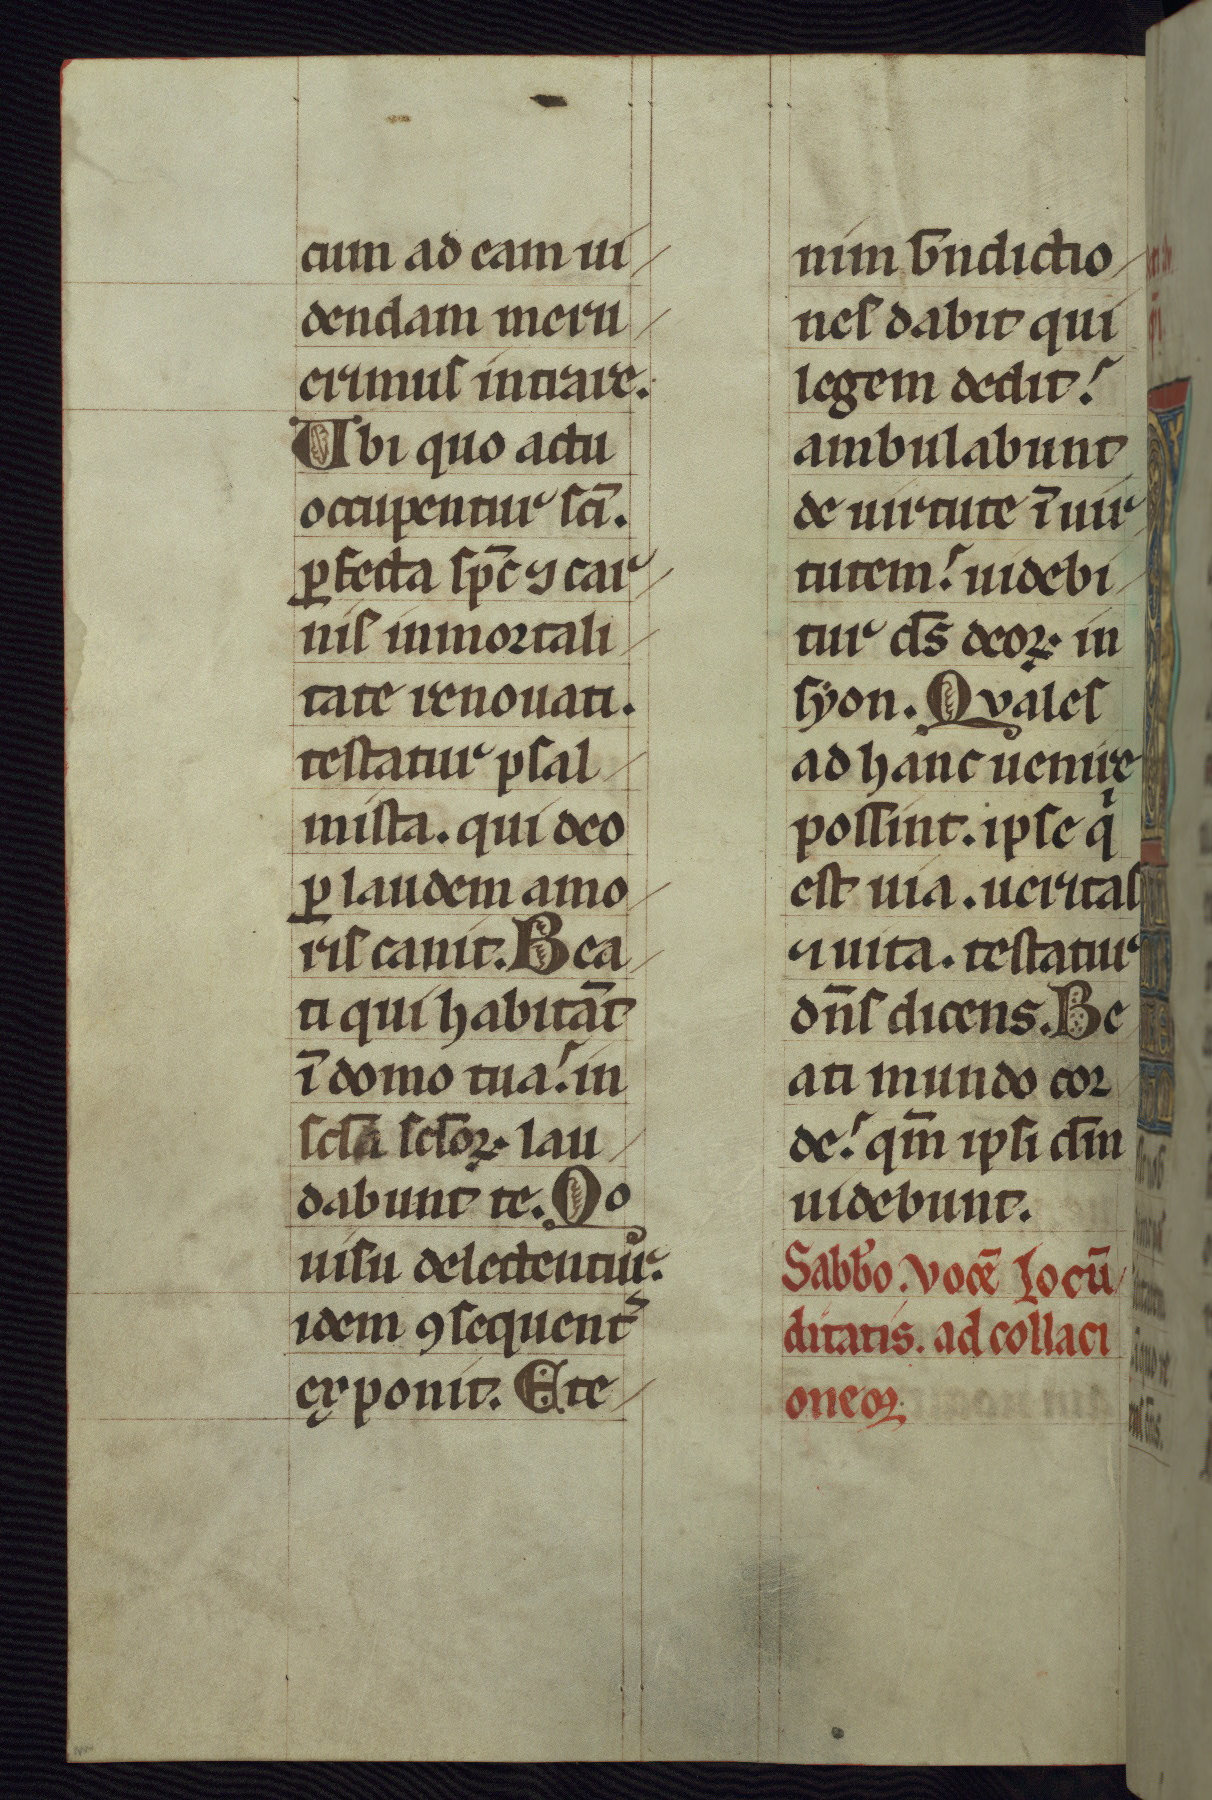 cum ad eam ui
dendam meru
erimus intrare.
Ubi quo actu
occupentur sc̄i.
ꝑfecta sp̄c ⁊ car
nis inmortali
tate renouati.
testatur psal
mista. qui deo
ꝑ laudem amo
ris canit. Bea
ti qui habitāt
ī domo tua: in
scl̄a scl̄oꝝ lau
dabunt te. Qo
uisu delectentur.
idem ꝯsequent᷑
exponit. Ete
nim b̄ndictio
nes dabit qui
legem dedit:
ambulabunt
de uirtute ī uir
tutem: uidebi
tur d̄s deoꝝ in
syon. Quales
ad hanc uenire
possint. ipse qⁱ
est uia. ueritas
⁊ uita. testatur
dn̄s dicens. Be
ati mundo cor
de: qm̄ ipsi dm̄
uidebunt.
Sabb̄o. vocē Iocū
ditatis. ad collaci
oneꝫ